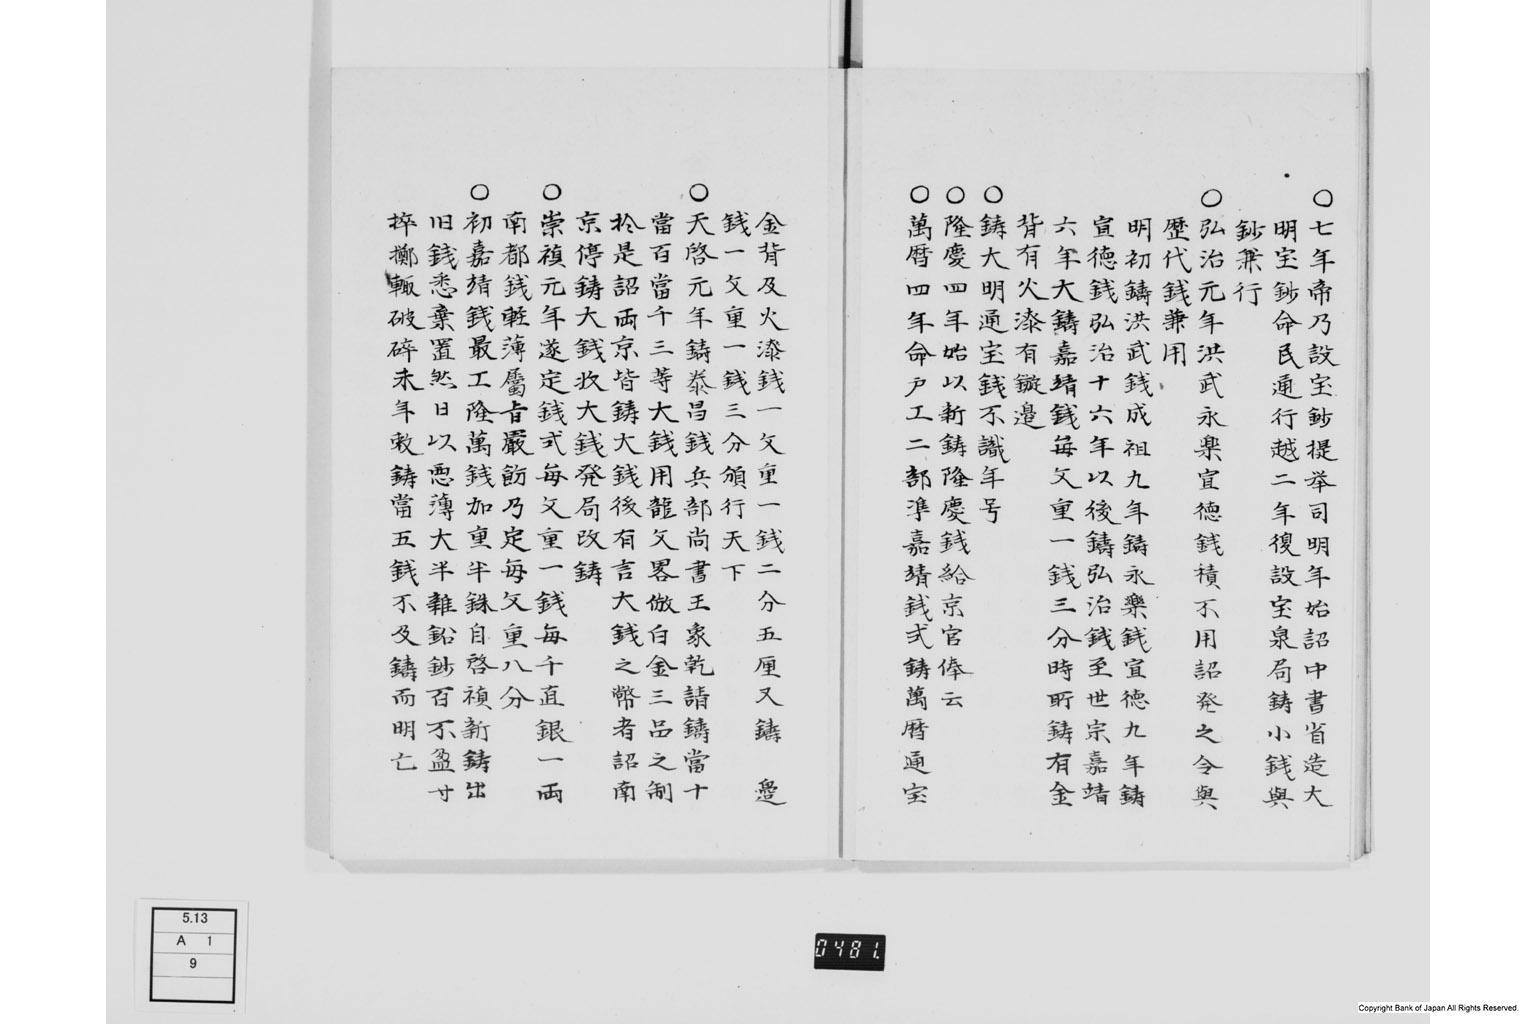 ○七年帝乃設宝鈔提挙司明年始詔中書省造大
明宝鈔命民通行越二年復設宝泉局鋳小銭與
鈔兼行
○弘治元年洪武永楽宣徳銭積不用詔発之令與
歴代銭兼用
明初鑄洪武銭成祖九年鑄永樂銭宣徳九年鋳
宣徳銭弘治十六年以後鑄弘治銭至世宗嘉靖
六年大鑄嘉靖銭毎文重一銭三分時所鋳有金
背有火漆有鏇邉
○鋳大明通宝銭不識年号
○隆慶四年始以新鋳隆慶銭給京官俸云
○萬暦四年命戸工二部準嘉靖銭式鋳萬暦通宝
金背及火漆銭一文重一銭二分五厘又鑄 邉
銭一文重一銭三分頒行天下
○天啓元年鋳泰昌銭兵部尚書王象乾請鑄當十
當百當千三等大銭用龍文畧倣白金三品之制
於是詔両京皆鑄大銭後有言大銭之幣者詔南
京停鋳大銭收大銭発局改鋳
○崇禎元年遂定銭式毎文重一銭毎千直銀一両
南都銭軽薄屬旨嚴飭乃定毎文重八分
○初嘉靖銭最工隆萬銭加重半銖自啓禎新鋳出
旧銭悉棄置然日以悪薄大半雜鉛鈔百不盈寸
捽擲輙破碎末年敕鋳當五銭不及鑄而明亡
5.13
A 1
9
0481.
Copyright Bank of Japan All Rights Reserved.